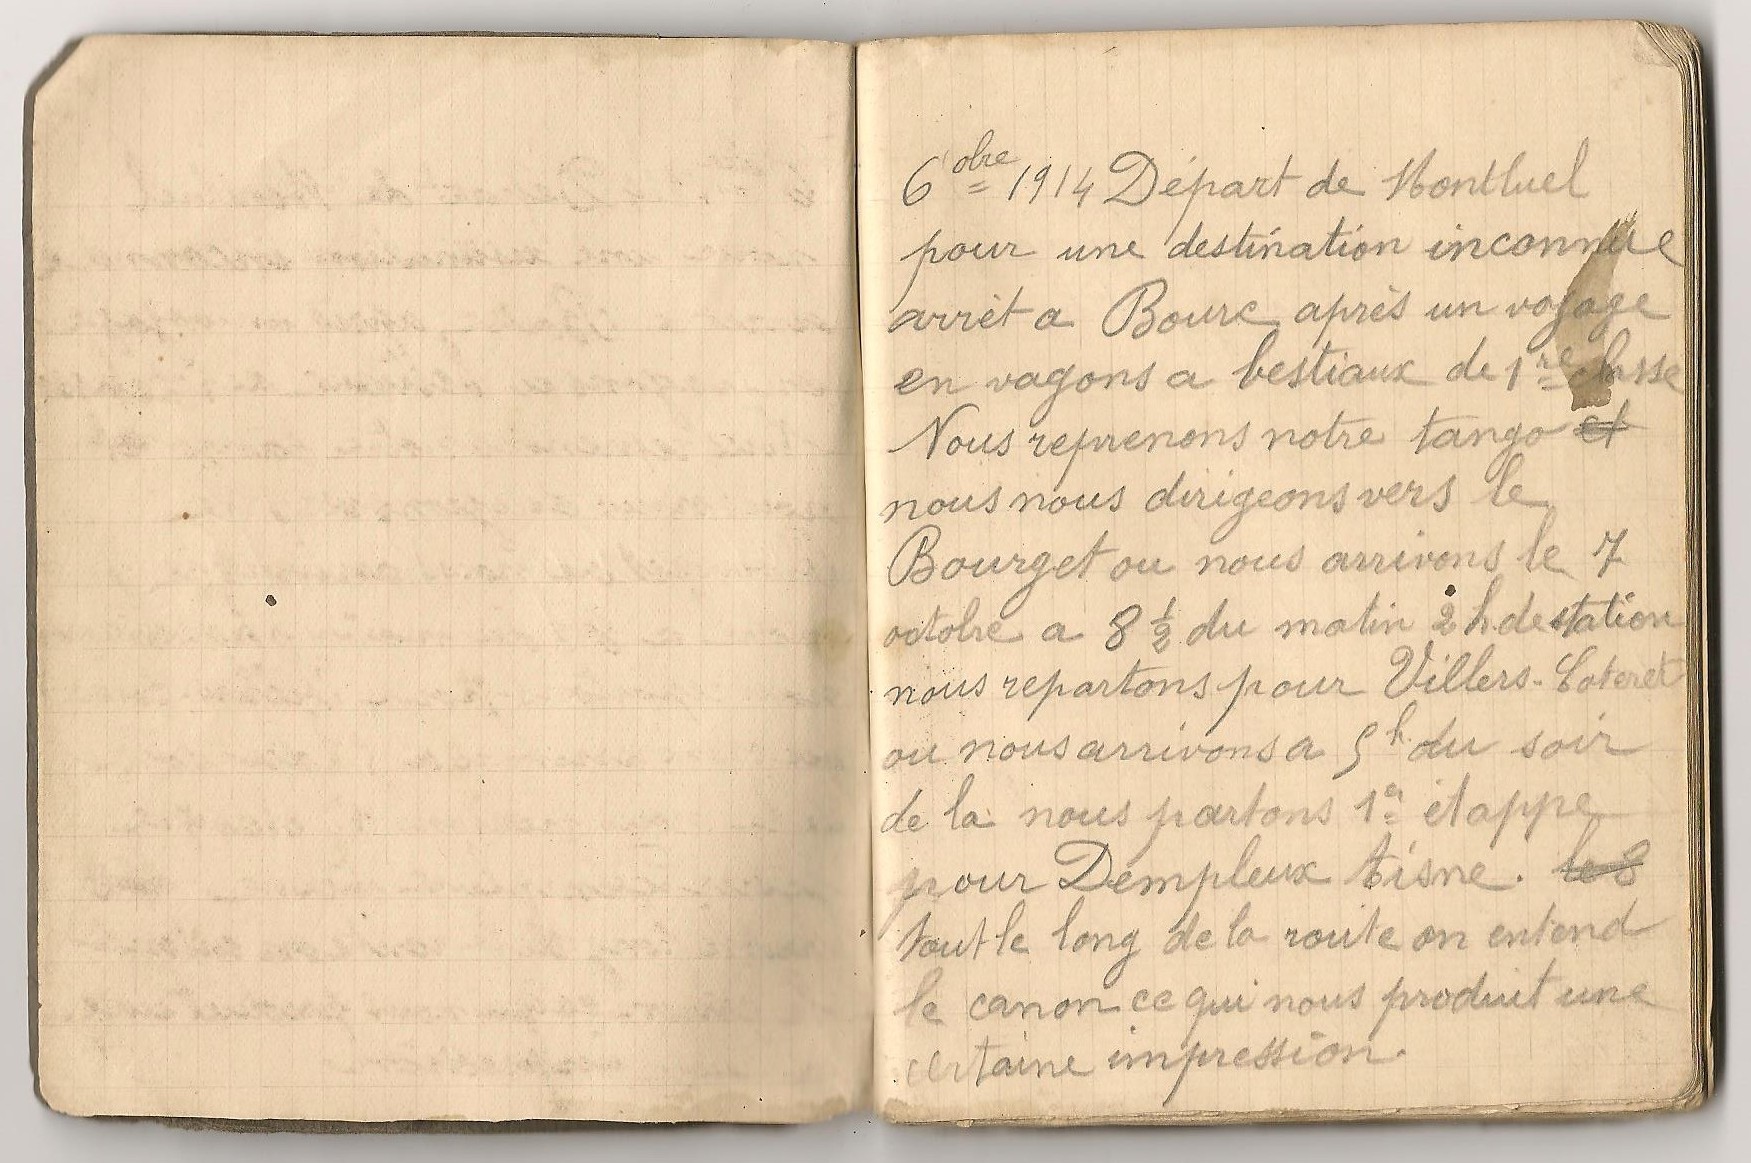 6 obre 1914 Départ de Montluel
pour une destination inconnue
arrêt a Bourc après un voyage
en vagons a bestiaux de 1re classe
Nous reprenons notre tango et
nous nous dirigeons vers le
Bourget ou nous arrivons le 7
octobre a 8 ½ du matin 2 h de station
nous repartons pour Villers-Coteret
ou nous arrivons a 5h du soir
de la nous partons 1e étappe
pour Dempleux Aisne. le 8
tout le long de la route on entend
le canon ce qui nous produit une
certaine impression.